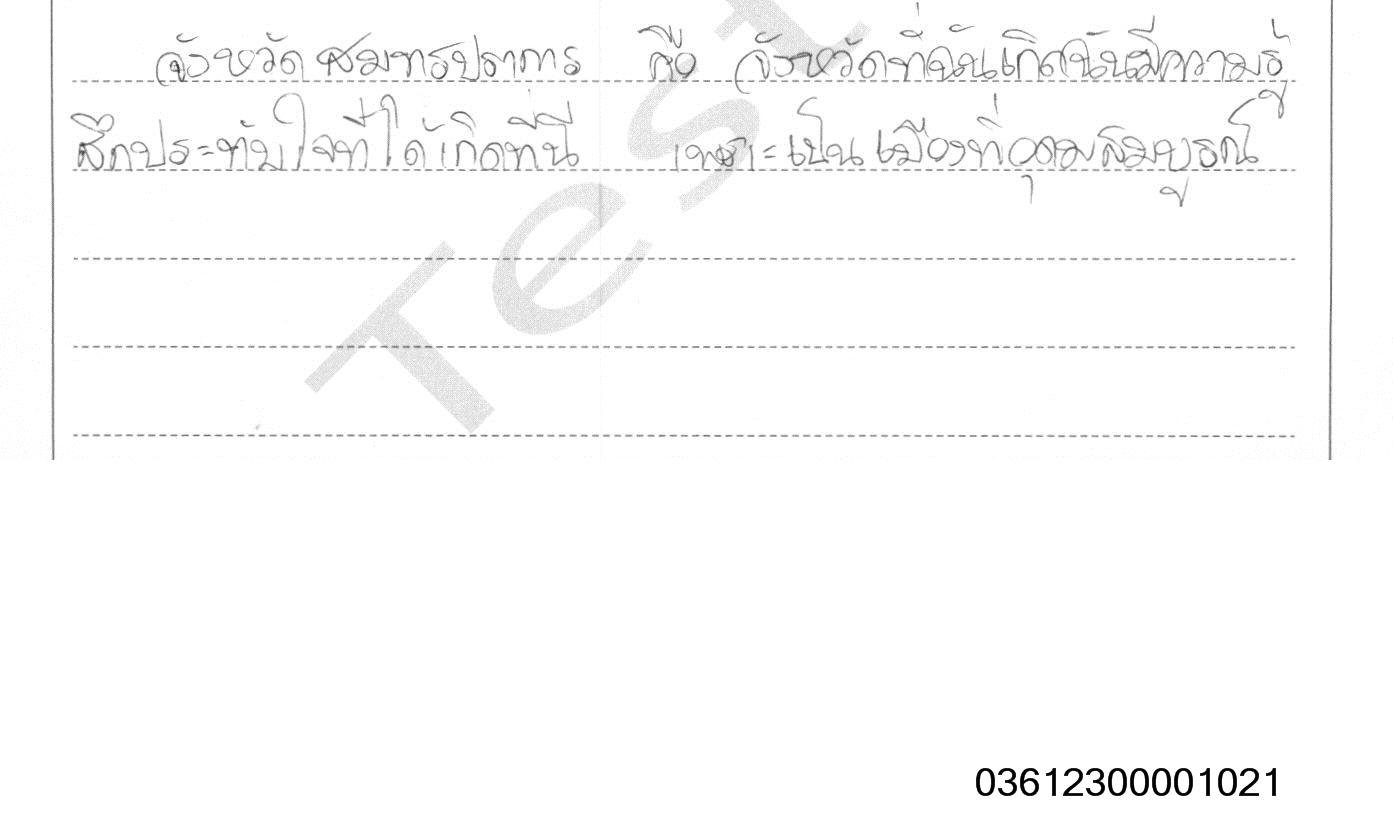 จังหวัดสมทรปราการ คือ จังหวัดที่ฉันเกิดฉันมีความรู้
สึกประทับใจที่ได้เกิดที่นี่ เพราะเป็นเมืองที่อุดมสมบูรณ์
Test
03612300001021